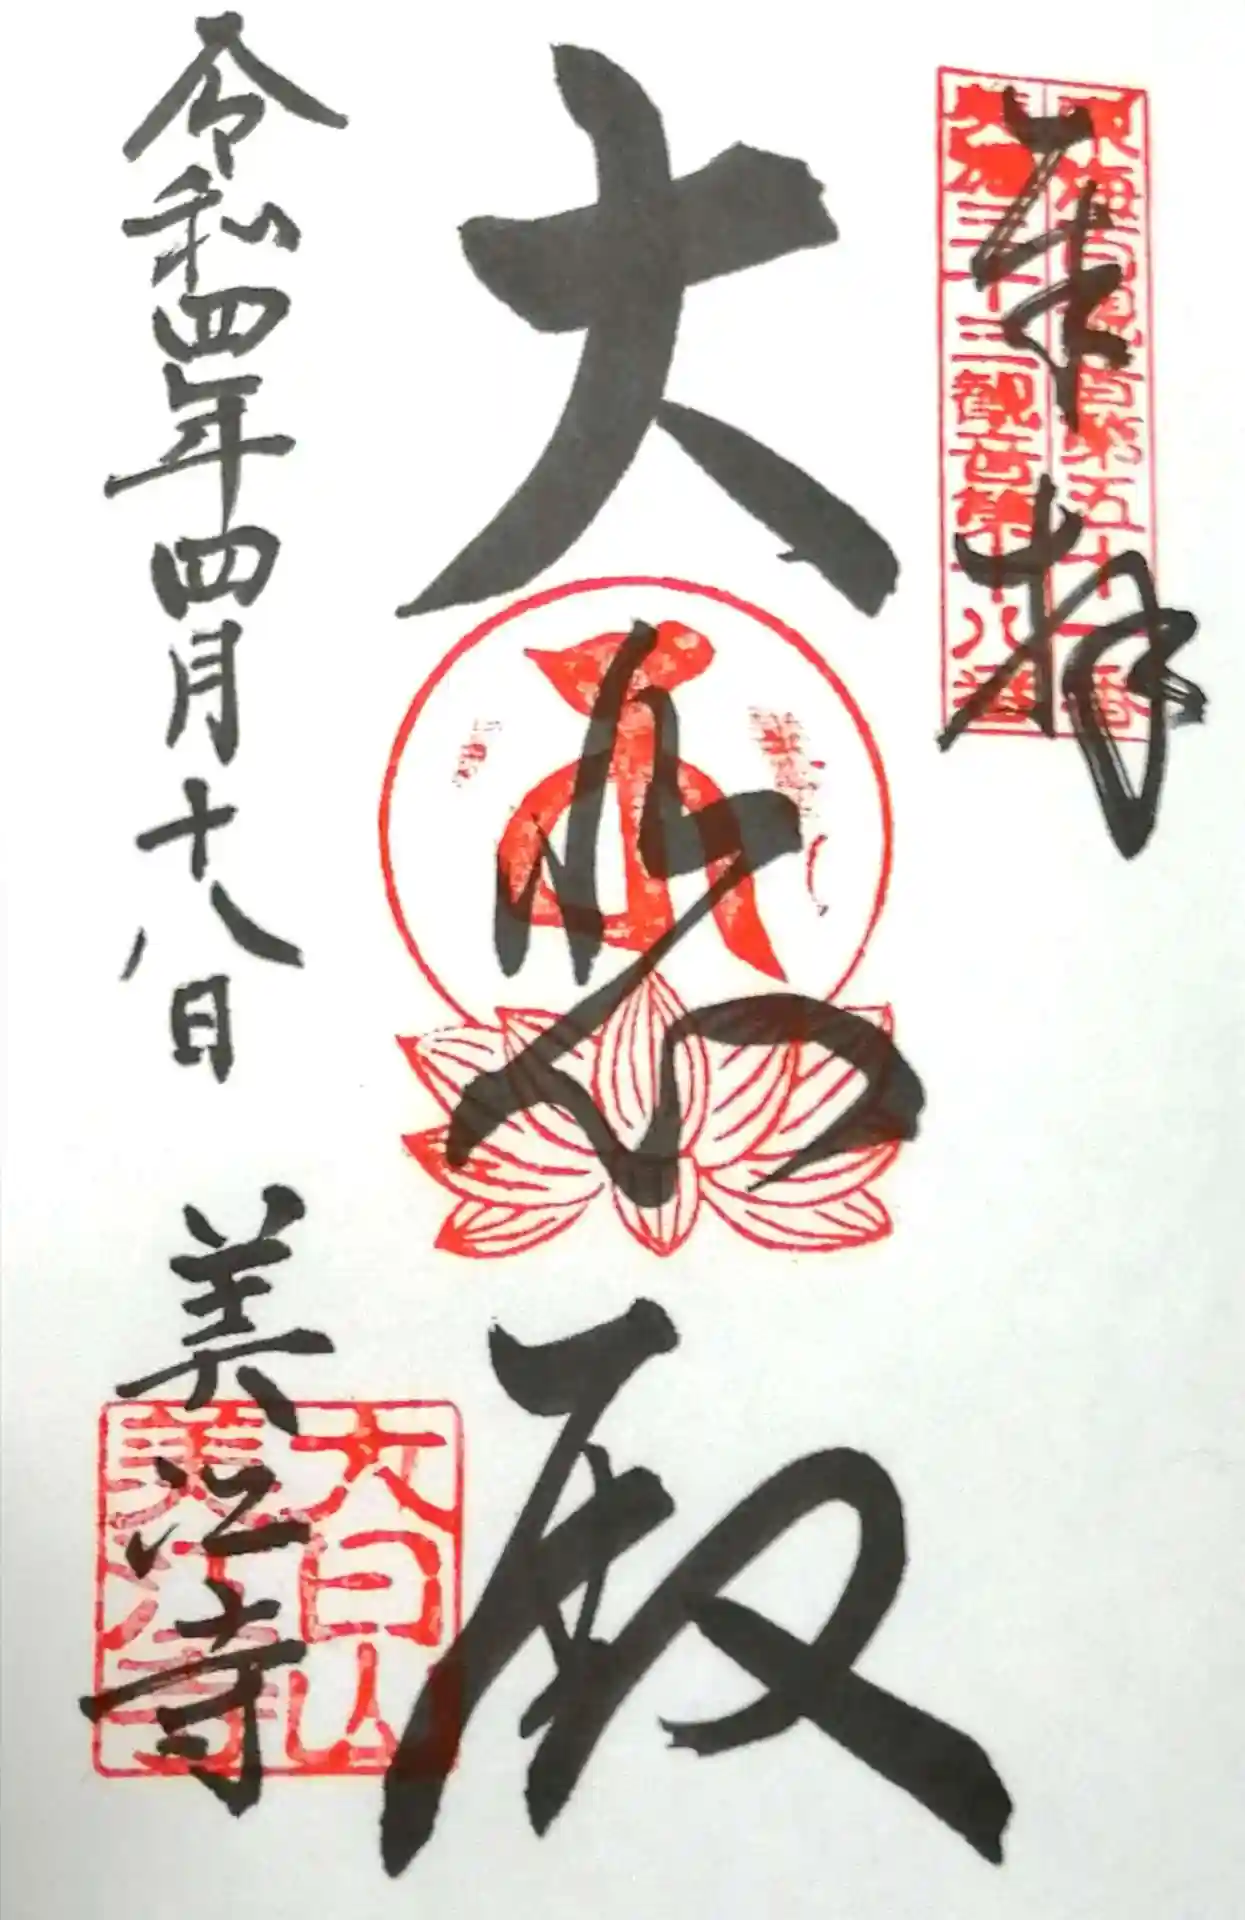 奉拝
東海百観音第五十一番
美濃三十三観音第十八番
大悲殿
令和四年四月十八日
美江寺
大日山
美江寺